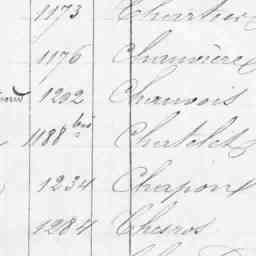 1173 Chartier
1176 Chauvière
1202 Chauvois
1188 bis Chatelet
1234 Chapon
1284 Chesros